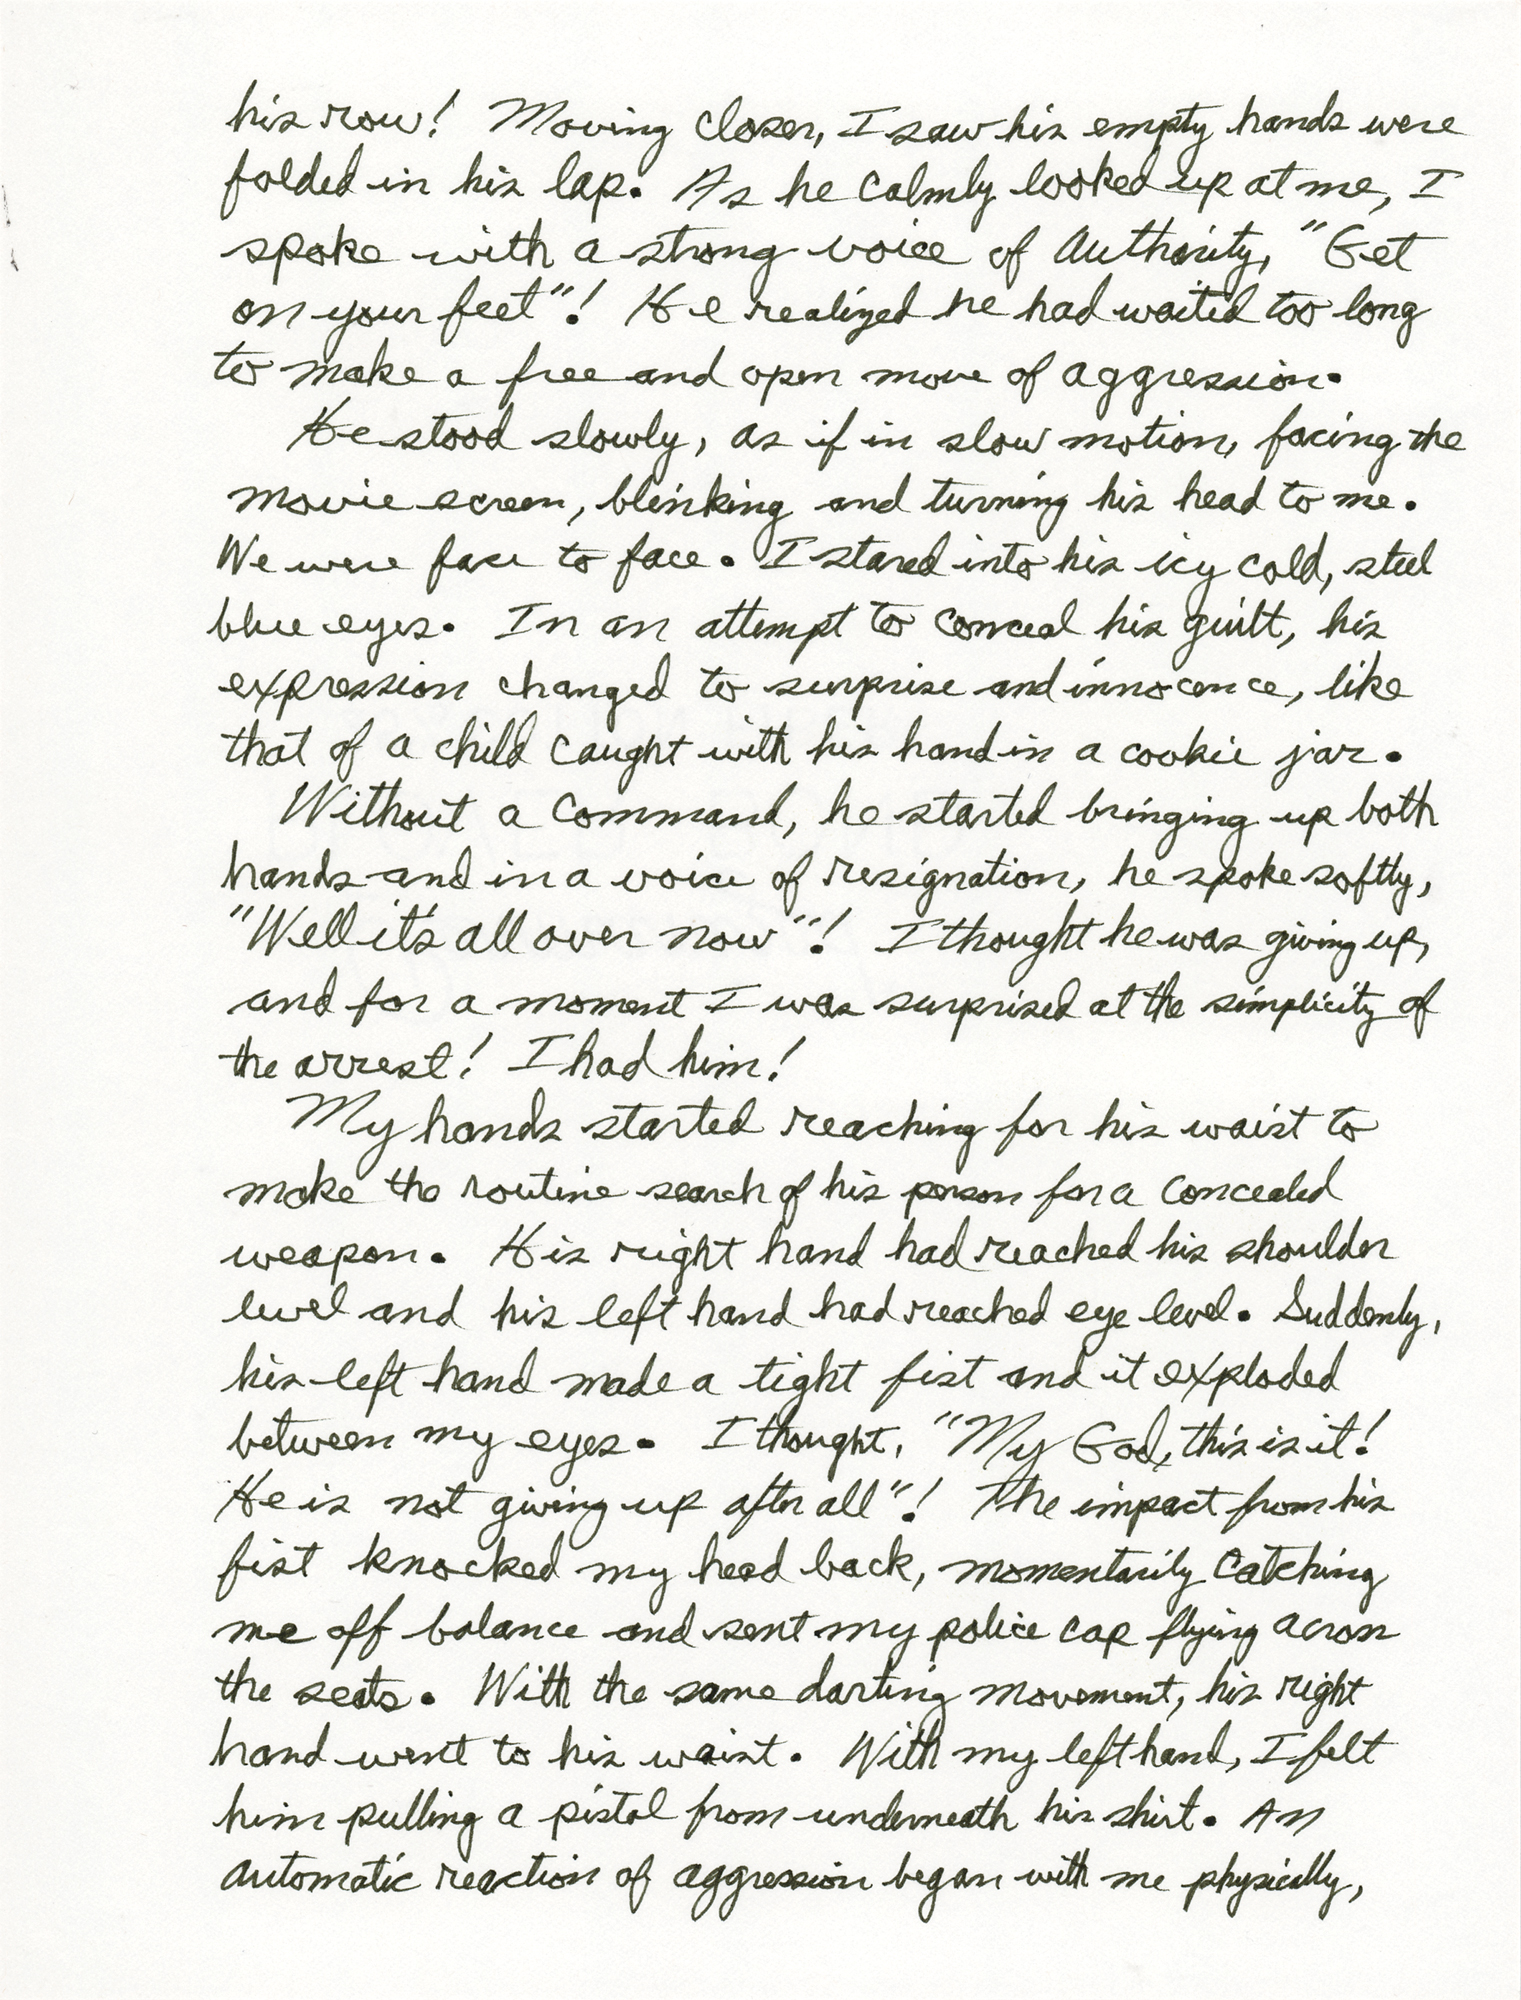 his row! Moving closer, I saw his empty hands were
folded in his lap. As he calmly looked up at me, I
spoke with a strong voice of authority, "Get
on your feet"! He realized he had waited too long
to make a free and open move of aggression.
He stood slowly, as if in slow motion, facing the
movie screen, blinking and turning his head to me.
We were face to face. I stared into his icy cold, steel
blue eyes. In an attempt to conceal his guilt, his
expression changed to surprise and innocence, like
that of a child caught with his hand in a cookie jar.
Without a command, he started bringing up both
hands and in a voice of resignation, he spoke softly,
"Well it's all over now"! I thought he was giving up,
and for a moment I was surprised at the simplicity of
the arrest! I had him!
My hands started reaching for his waist to
make the routine search of his person for a concealed
weapon. His right hand had reached his shoulder
level and his left hand had reached eye level. Suddenly,
his left hand made a tight fist and it exploded
between my eyes. I thought, "My God, this is it!
He is not giving up after all"! The impact from his
fist knocked my head back, momentarily catching
me off balance and sent my police cap flying across
the seats. With the same darting movement, his right
hand went to his waist. With my left hand, I felt
him pulling a pistol from underneath his shirt. An
automatic reaction of aggression began with me physically,